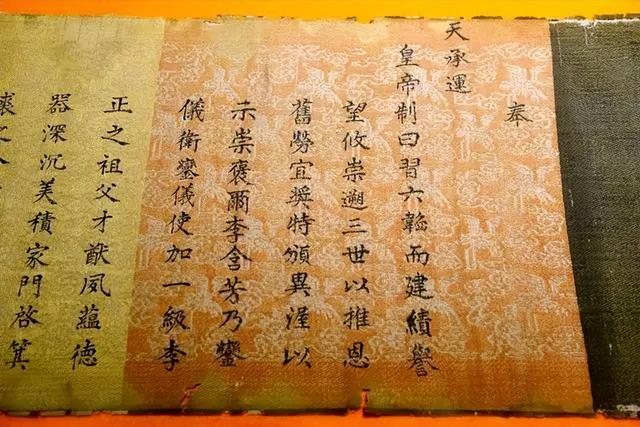 奉
天承運
皇帝制曰習六韜而建績譽
望攸崇遡三世以推恩
舊勞宜奬特頒異渥以
示崇褒爾李含芳乃鑾
儀衛鑾儀使加一級李
正之祖父才猷夙蘊德
器深沉美積家門啓箕
裘之